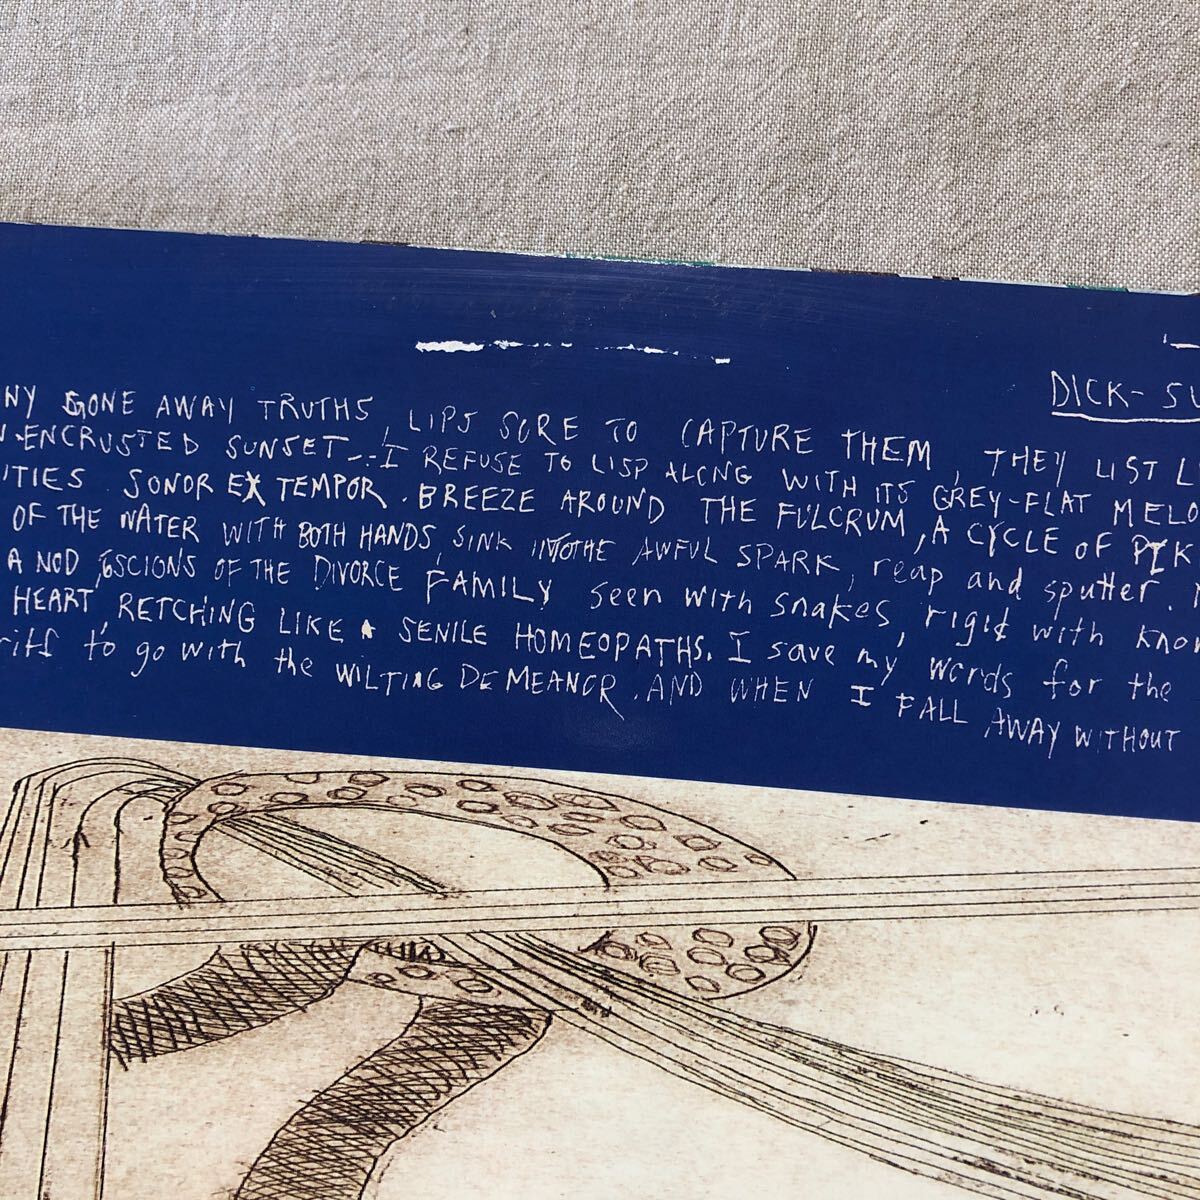 DICK-SU
NY GONE AWAY TRUTHS, LIPS SURE TO CAPTURE THEM, THEY LIST L
N-ENCRUSTED SUNSET--: I REFUSE TO LISP ALONG WITH ITS GREY-FLAT MELO
ITIES SONOR EX TEMPOR. BREEZE AROUND THE FULCRUM, A CYCLE OF
OF THE WATER WITH BOTH HANDS, SINK INTO THE AWFUL SPARK, reap and sputter.
A NOD, SCIONS OF THE DIVORCE FAMILY seen with snakes, rigid with know
HEART, RETCHING LIKE SENILE HOMEOPATHS. I save my words for the
riff to go with the WILTING DEMEANOR. AND WHEN I FALL AWAY WITHOUT